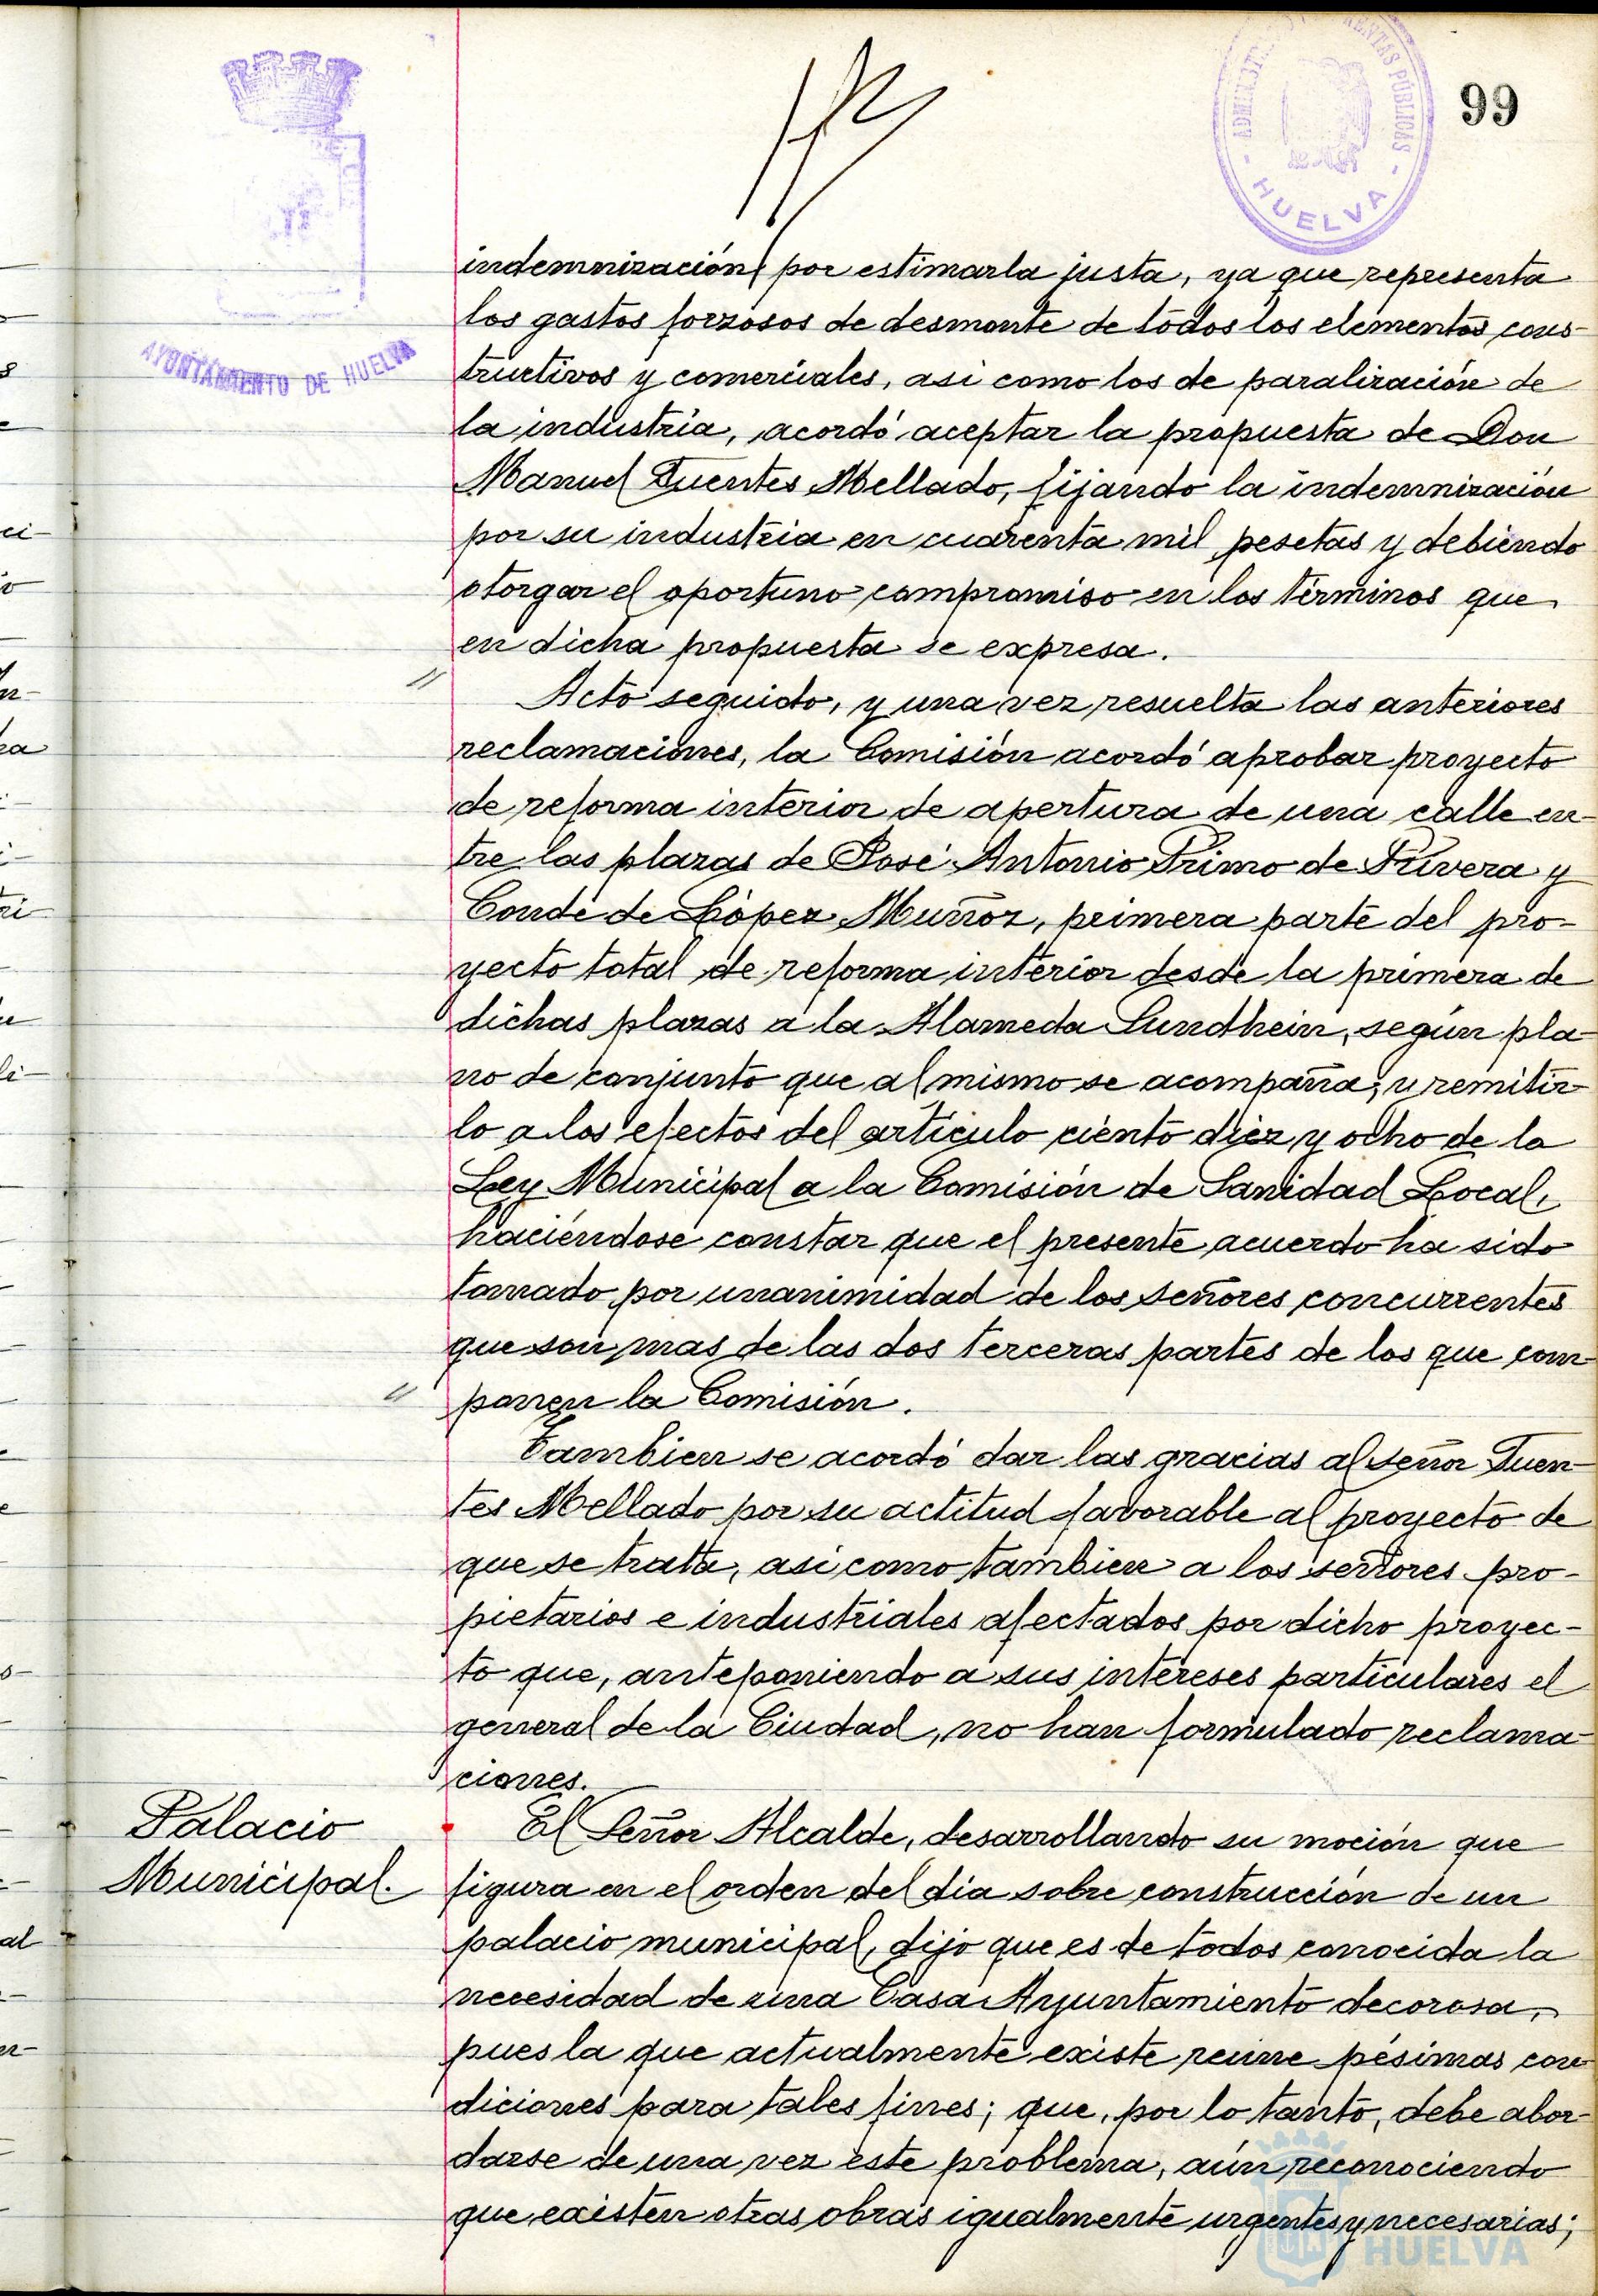 99
ADMINISTRACION RENTAS PÚBLICAS
- HUELVA -
AYUNTAMIENTO DE HUELVA
indemnización, por estimarla justa, ya que representa
los gastos forzosos de desmonte de todos los elementos cons-
tructivos y comerciales, asi como los de paralización de
la industria, acordó aceptar la propuesta de Don
Manuel Fuentes Mellado, fijando la indemnización
por su industria en cuarenta mil pesetas y debiendo
otorgar el oportuno compromiso en los términos que
en dicha propuesta se expresa.
Acto seguido, y una vez resuelta las anteriores
reclamaciones, la Comisión acordó aprobar proyecto
de reforma interior de apertura de una calle en-
tre las plazas de José Antonio Primo de Rivera y
Conde de López Muñoz, primera parte del pro-
yecto total de reforma interior desde la primera de
dichas plazas a la Alameda Sundhein, según pla-
no de conjunto que al mismo se acompaña; y remitir-
lo a los efectos del artículo ciento diez y ocho de la
Ley Municipal a la Comisión de Sanidad Local,
haciéndose constar que el presente acuerdo ha sido
tomado por unanimidad de los señores concurrentes
que son mas de las dos terceras partes de los que com-
ponen la Comisión.
Tambien se acordó dar las gracias al señor Fuen-
tes Mellado por su actitud favorable al proyecto de
que se trata, asi como tambien a los señores pro-
pietarios e industriales afectados por dicho proyec-
to que, anteponiendo a sus intereses particulares el
general de la Ciudad, no han formulado reclama-
ciones.
Palacio
Municipal.
El Señor Alcalde, desarrollando su moción que
figura en el orden del dia sobre construcción de un
palacio municipal, dijo que es de todos conocida la
necesidad de una Casa Ayuntamiento decorosa,
pues la que actualmente existe reune pésimas con-
diciones para tales fines; que, por lo tanto, debe abor-
darse de una vez este problema, aún reconociendo
que existen otras obras igualmente urgentes y necesarias;
HUELVA